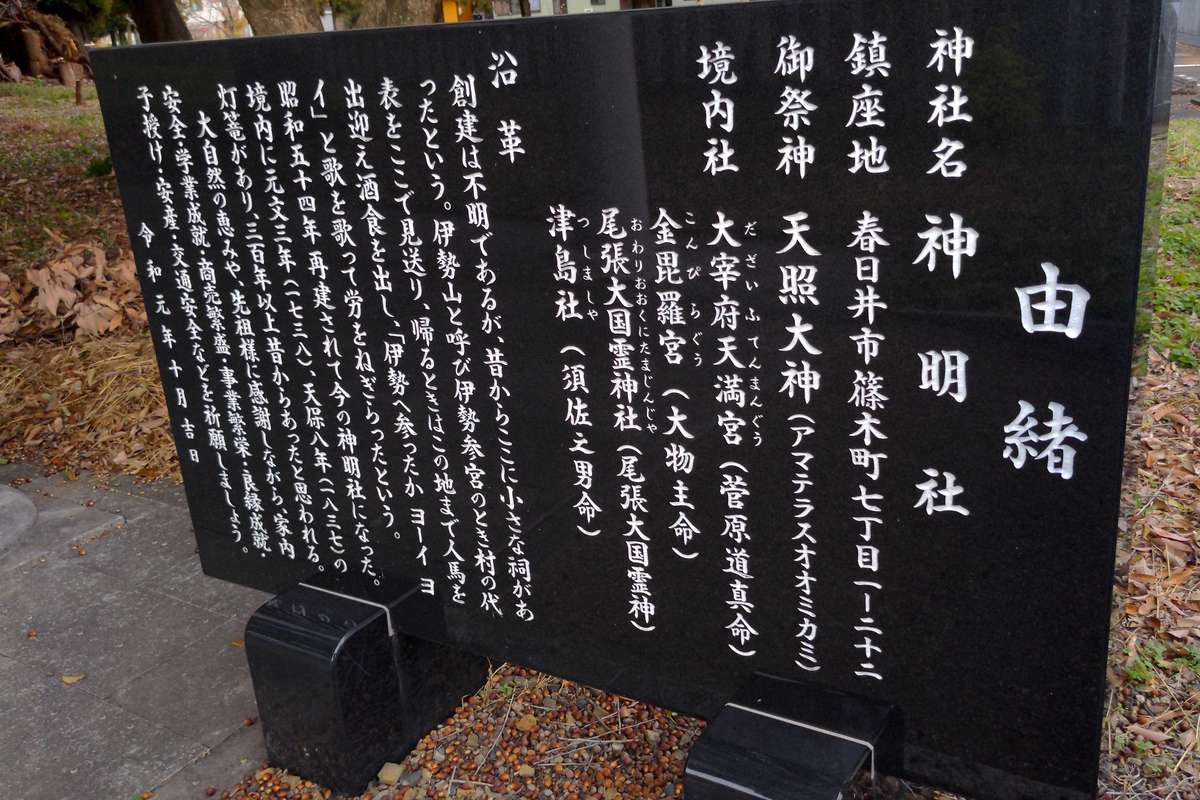 由緒
神社名 神明社
鎮座地 春日井市篠木町七丁目一ー二十二
御祭神 天照大神(アマテラスオオミカミ)
境内社 大宰府天満宮(菅原道真命)
だざいふてんまんぐう
金毘羅宮(大物主命)
こんぴらぐう
尾張大国霊神社(尾張大国霊神)
おわりおおくにたまじんじゃ
津島社(須佐之男命)
つしましゃ
沿革
創建は不明であるが、昔からここに小さな祠があ
ったという。伊勢山と呼び伊勢参宮のとき村の代
表をここで見送り、帰るときはこの地まで人馬を
出迎え酒食を出し、「伊勢へ参ったか ヨーイヨ
イ」と歌を歌って労をねぎらったという。
昭和五十四年 再建されて今の神明社になった。
境内に元文三年(一七三八)、天保八年(一八三七)の
灯篭があり、三百年以上昔からあったと思われる。
大自然の恵みや、先祖様に感謝しながら、家内
安全・学業成就・商売繁盛・事業繁栄・良縁成就・
子授け・安産・交通安全などを祈願しましょう。
令和元年十月吉日